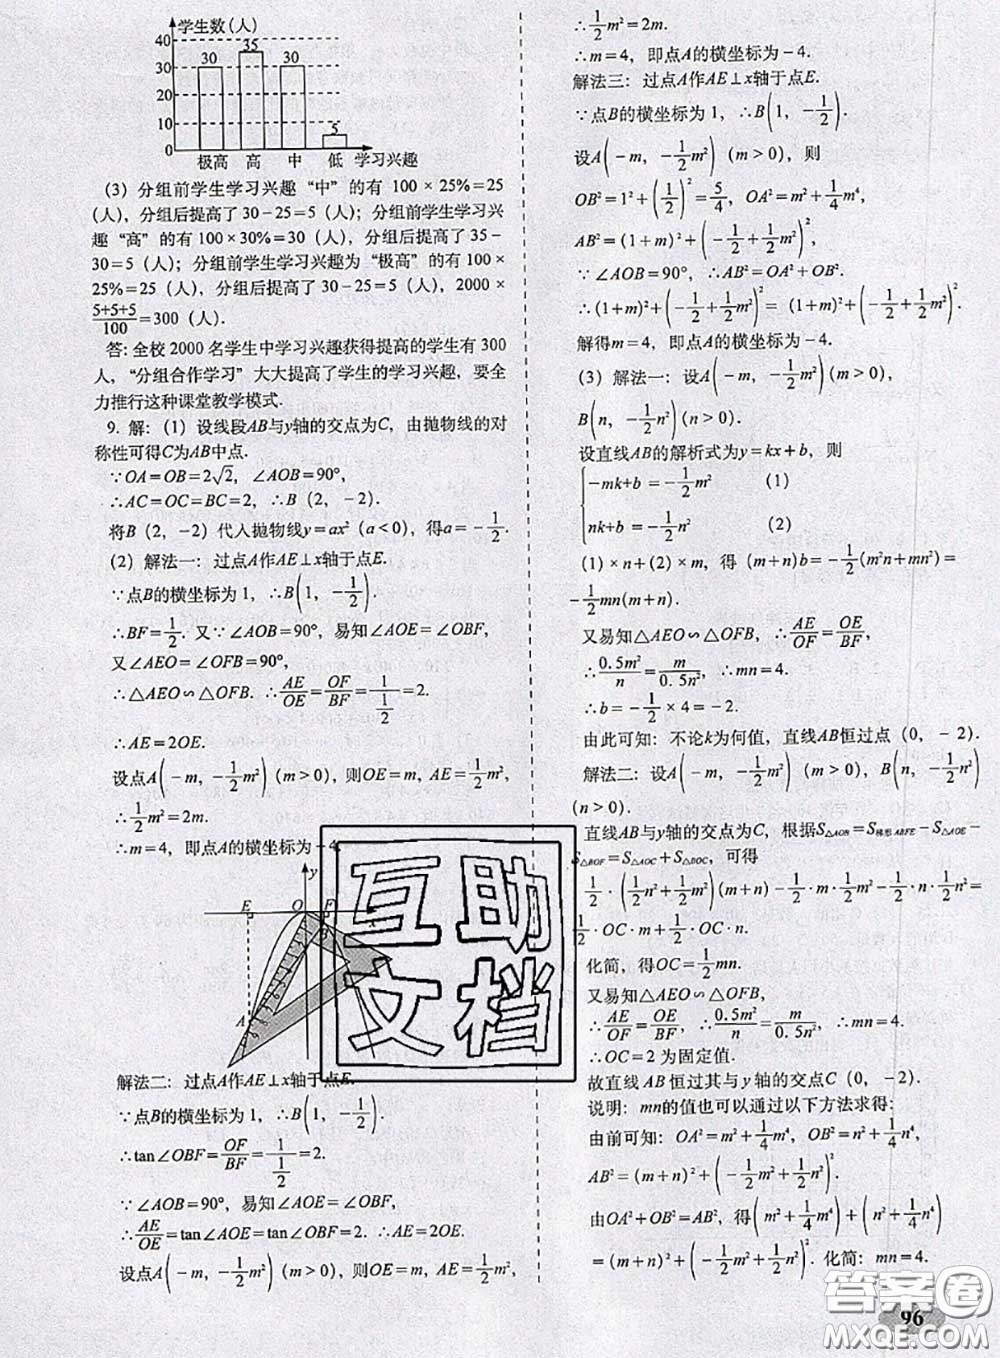 学生数(人)
40
30
20
10
0
30
35
30
5
极高 高 中 低 学习兴趣
(3) 分组前学生学习兴趣“中”的有 100×25%=25
(人), 分组后提高了 30-25=5 (人); 分组前学生学习兴
趣“高”的有 100×30%=30 (人), 分组后提高了 35-
30=5 (人); 分组前学生学习兴趣为“极高”的有 100×
25%=25 (人), 分组后提高了 30-25=5 (人), 2000×
(5+5+5)/100=300 (人).
答: 全校 2000 名学生中学习兴趣获得提高的学生有 300
人, “分组合作学习”大大提高了学生的学习兴趣, 要全
力推行这种课堂教学模式.
9. 解: (1) 设线段AB与y轴的交点为C, 由抛物线的对
称性可得C为AB中点.
∵OA=OB=2√2, ∠AOB=90°,
∴AC=OC=BC=2, ∴B (2, -2).
将B (2, -2) 代入抛物线y=ax² (a<0), 得a=-1/2.
(2) 解法一: 过点A作AE⊥x轴于点E.
∵点B的横坐标为1, ∴B(1, -1/2).
∴BF=1/2. 又∵∠AOB=90°, 易知∠AOE=∠OBF,
又∠AEO=∠OFB=90°,
∴△AEO∽△OFB. ∴AE/OE=OF/BF=1/(1/2)=2.
∴AE=2OE.
设点A(-m, -1/2m²) (m>0), 则OE=m, AE=1/2m²,
∴1/2m²=2m.
∴m=4, 即点A的横坐标为-4.
y
E O F x
B
A
解法二: 过点A作AE⊥x轴于点E.
∵点B的横坐标为1, ∴B(1, -1/2).
∴tan∠OBF=OF/BF=1/(1/2)=2.
∵∠AOB=90°, 易知∠AOE=∠OBF,
∴AE/OE=tan∠AOE=tan∠OBF=2. ∴AE=2OE.
设点A(-m, -1/2m²) (m>0), 则OE=m, AE=1/2m²,
∴1/2m²=2m.
∴m=4, 即点A的横坐标为-4.
解法三: 过点A作AE⊥x轴于点E.
∵点B的横坐标为1, ∴B(1, -1/2).
设A(-m, -1/2m²) (m>0), 则
OB²=1²+(1/2)²=5/4, OA²=m²+1/4m⁴,
AB²=(1+m)²+(-1/2+1/2m²)².
∵∠AOB=90°, ∴AB²=OA²+OB².
∴(1+m)²+(-1/2+1/2m²)²=(1+m)²+(-1/2+1/2m²)².
解得m=4, 即点A的横坐标为-4.
(3) 解法一: 设A(-m, -1/2m²)(m>0),
B(n, -1/2n²)(n>0).
设直线AB的解析式为y=kx+b, 则
-mk+b=-1/2m² (1)
nk+b=-1/2n² (2)
(1)×n+(2)×m, 得 (m+n)b=-1/2(m²n+mn²)=
-1/2mn(m+n).
又易知△AEO∽△OFB, ∴AE/OF=OE/BF,
∴0.5m²/n=m/0.5n², ∴mn=4.
∴b=-1/2×4=-2.
由此可知: 不论k为何值, 直线AB恒过点 (0, -2).
解法二: 设A(-m, -1/2m²)(m>0), B(n, -1/2n²)
(n>0).
直线AB与y轴的交点为C, 根据S△AOB=S梯形ABFE-S△AOE-
S△BOF=S△AOC+S△BOC, 可得
1/2·(1/2n²+1/2m²)(m+n)-1/2·m·1/2m²-1/2·n·1/2n²=
1/2·OC·m+1/2·OC·n.
化简, 得OC=1/2mn.
又易知△AEO∽△OFB,
∴AE/OF=OE/BF, ∴0.5m²/n=m/0.5n², ∴mn=4.
∴OC=2为固定值.
故直线AB恒过其与y轴的交点C (0, -2).
说明: mn的值也可以通过以下方法求得:
由前可知: OA²=m²+1/4m⁴, OB²=n²+1/4n⁴,
AB²=(m+n)²+(-1/2m²+1/2n²)²,
由OA²+OB²=AB², 得(m²+1/4m⁴)+(n²+1/4n⁴)
=(m+n)²+(-1/2m²+1/2n²)². 化简: mn=4.
互助
文档
答案圈
MXQE.COM
96